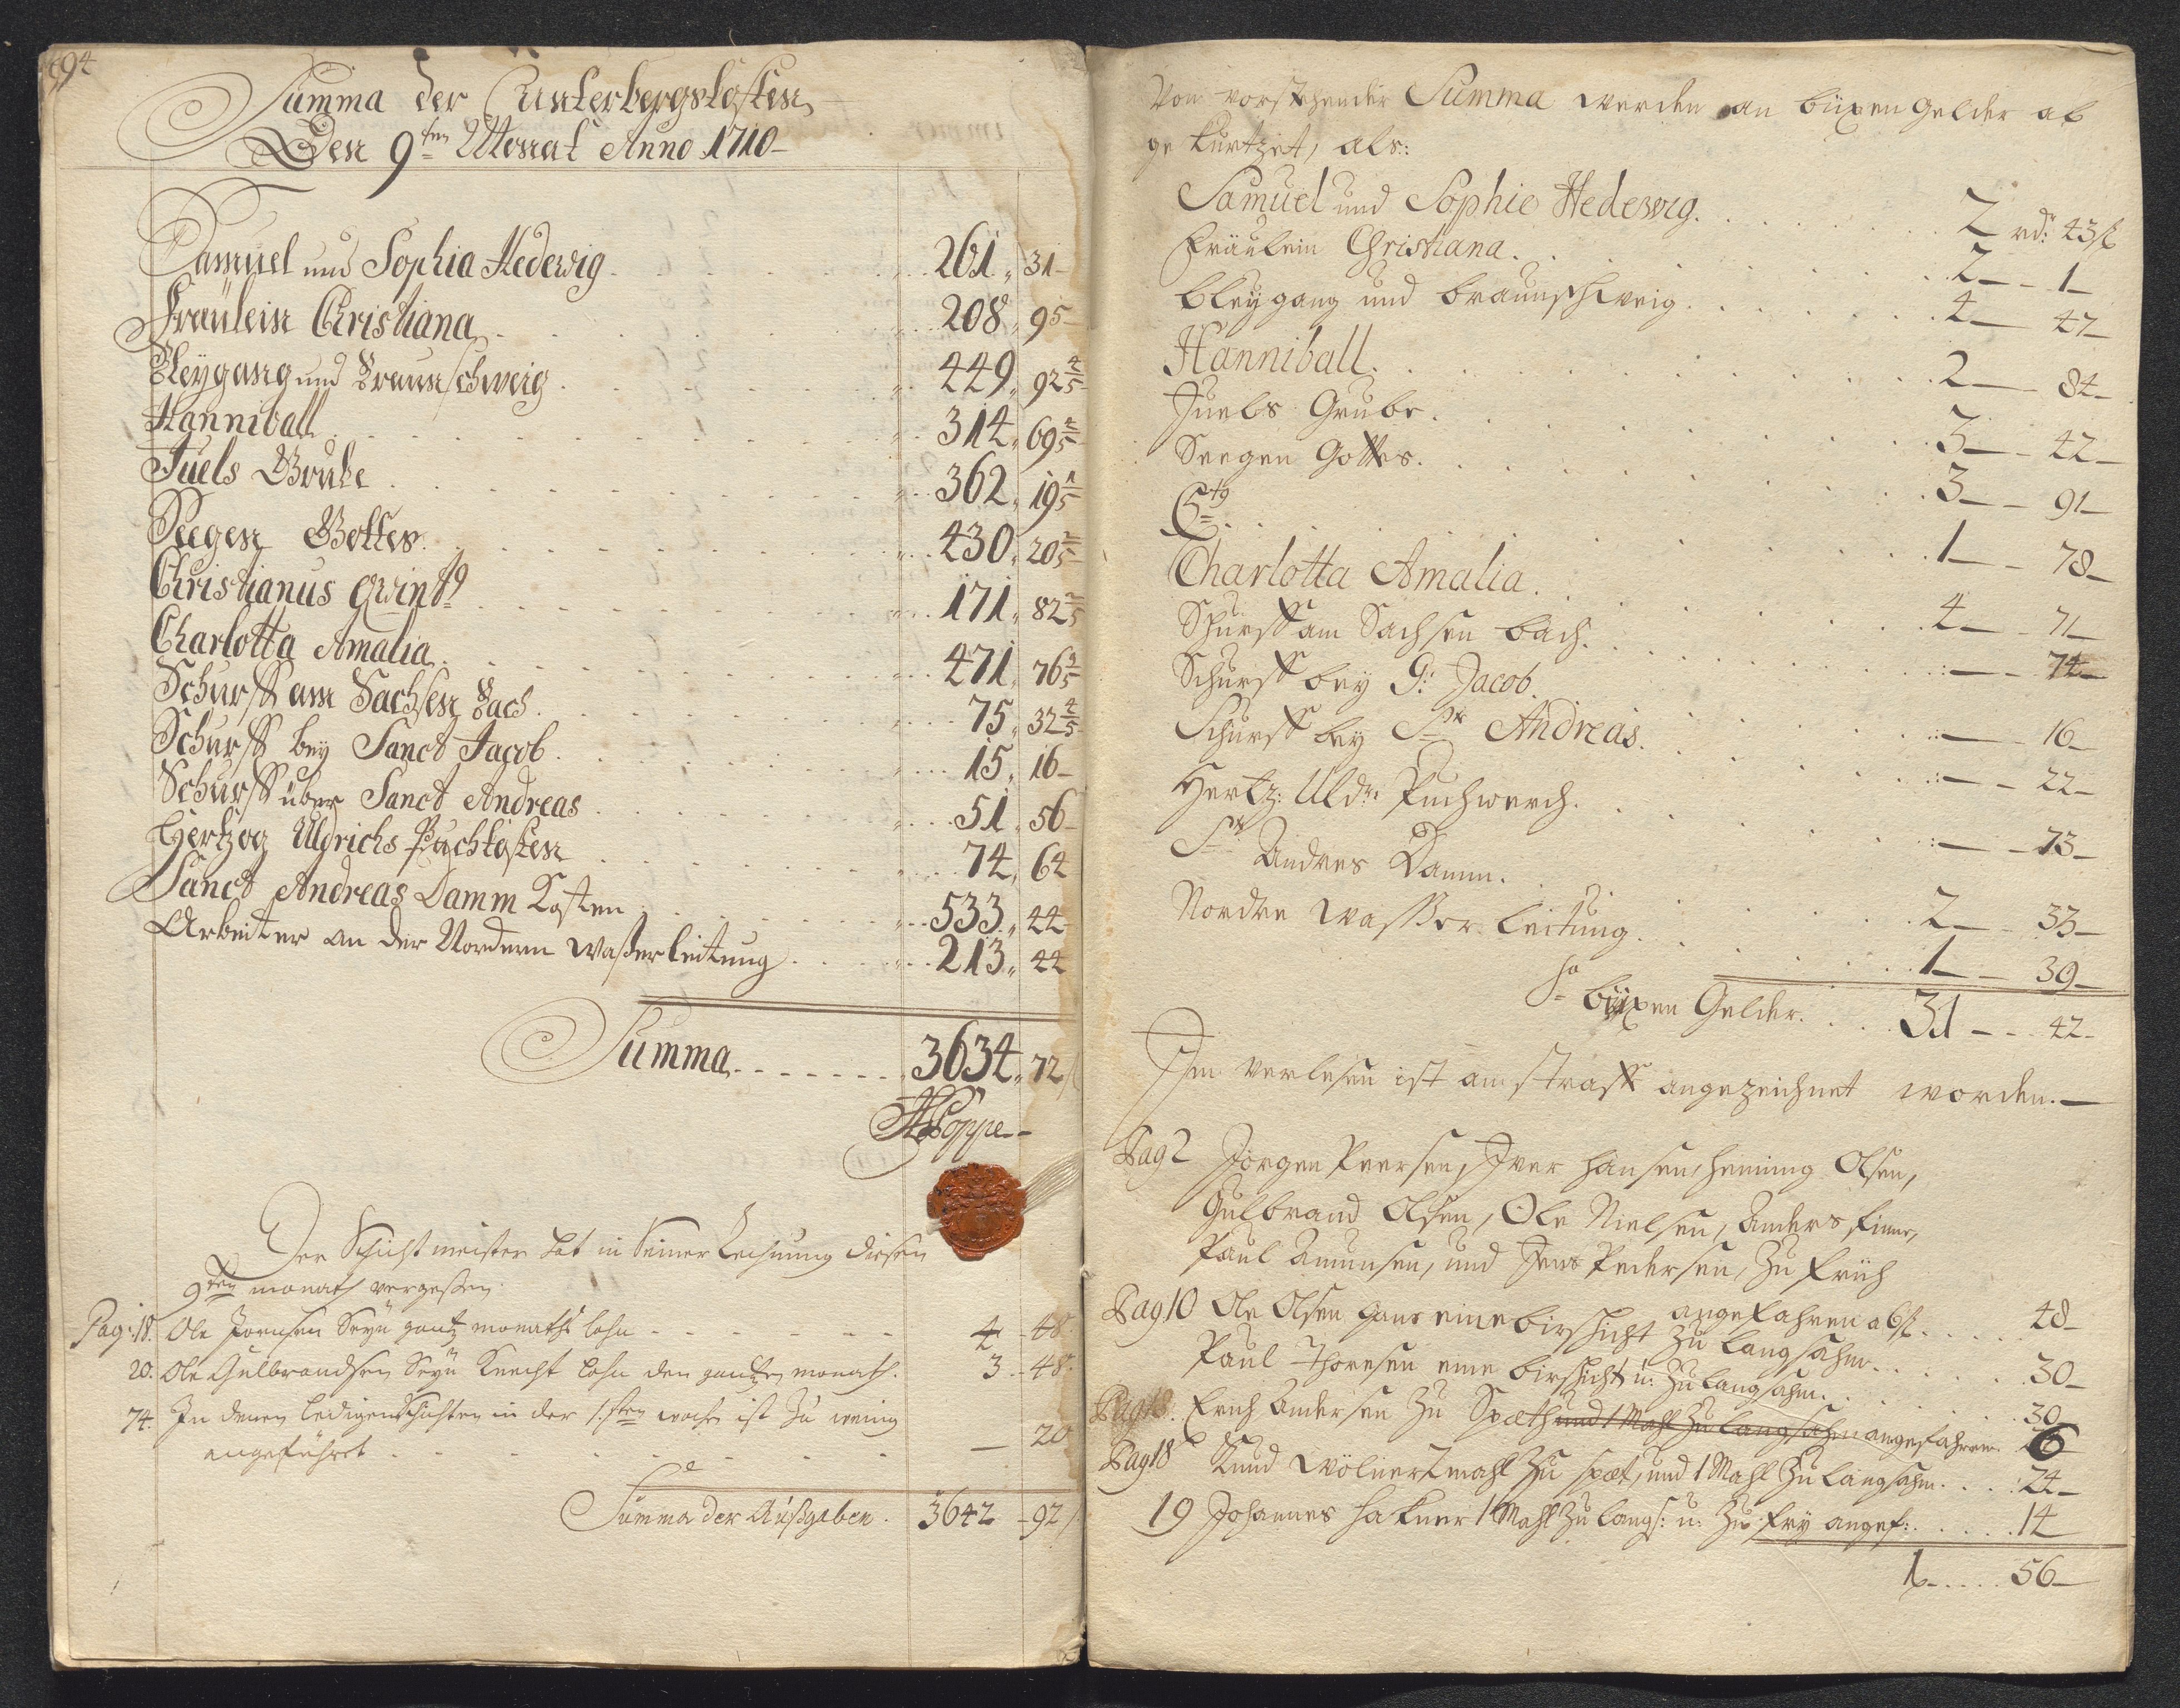 94
Summa der Unterbergskosten
Den 9ten Monat Anno 1710
Samuel und Sophia Hedewig . . . 261 „ 31
Fräulein Christiana . . . 208 „ 95
Bleygang und Braunschweig . . . 449 „ 92 4/5
Hanniball . . . 314 „ 69 2/5
Juels Grube . . . 362 „ 19 1/5
Seegen Gottes . . . 430 „ 20 2/5
Christianus Qvint9 . . . 171 „ 82 2/5
Charlotta Amalia . . . 471 „ 76
Schurff am Sachsen Bach . . . 75 „ 32 4/5
Schurff bey Sanct Jacob . . . 15 „ 16
Schurff über Sanct Andreas . . . 51 „ 56
Hertzog Uldrichs Puchkosten . . . 74 „ 64
Sanct Andreas Damm Kosten . . . 533 „ 44
Arbeiter an der Nordern Waßerleitung . . . 213 „ 44
Summa . . . 3634 „ 72
Hoppe
Der Schichtmeister hat in Seiner Rechnung diesen
9ten monath vergeßen.
Pag: 18. Ole Joensen Seyn gantz monaths lohn . . . 4 - 48
20. Ole Gulbrandsen Seyn Knecht lohn den gantzen monath. 3 - 48
74. In denen ledigen Schichten in der 1sten woche ist zu wenig
angeführet . . . — 20
Summa der Außgaben . 3642 - 92
Von vorstehender Summa werden an büxen Gelder ab
ge kürtzet, als::
Samuel und Sophie Hedewig . . . 2 rd: 43 ß
Fräulein Christiana . . . 2 — 1
Bleygang und braunschweig . . . 4 — 47
Hanniball . . . 2 — 84
Juels Grube . . . 3 — 42
Seegen Gottes . . . 3 — 91
C: 5t9 . . . 1 — 78
Charlotta Amalia . . . 4 — 71
Schurff am Sachsen bach . . . — 74
Schurff bey S: Jacob . . . — 16
Schurff bey St Andreas . . . — 22
Hertz: Uldr: Puchwerch . . . — 73
St Andres Damm . . . 2 — 33
Nordre Wasser Leitung . . . 1 — 39
Sa büxen Gelder . . . 31 — 42
Im Verlesen ist an straff angezeichnet worden. —
Pag 2 Jörgen Peersen, Iver Hansen, Henning Olsen,
Gulbrand Olsen, Ole Nielsen, Anders Finne,
Paul Amunsen, und Jens Pedersen, zu früh
angefahren a 6 ß . . . 48
Pag 10 Ole Olsen Gaus eine birschicht zu langsahm . . . 30
Paul Thoresen eine birschicht u: zu langsahm . . . 30
Pag 18. Erich Andersen zu Spæth und 1 Mahl zu langsahm angefahren. 6
Pag 18 Knud Wölner 2 mahl zu spæt, und 1 Mahl zu langsahm . . . 24
19 Johannes Hafner 1 Mahl zu langs: u: zu frü angef: . . . 14
1 . . . 56